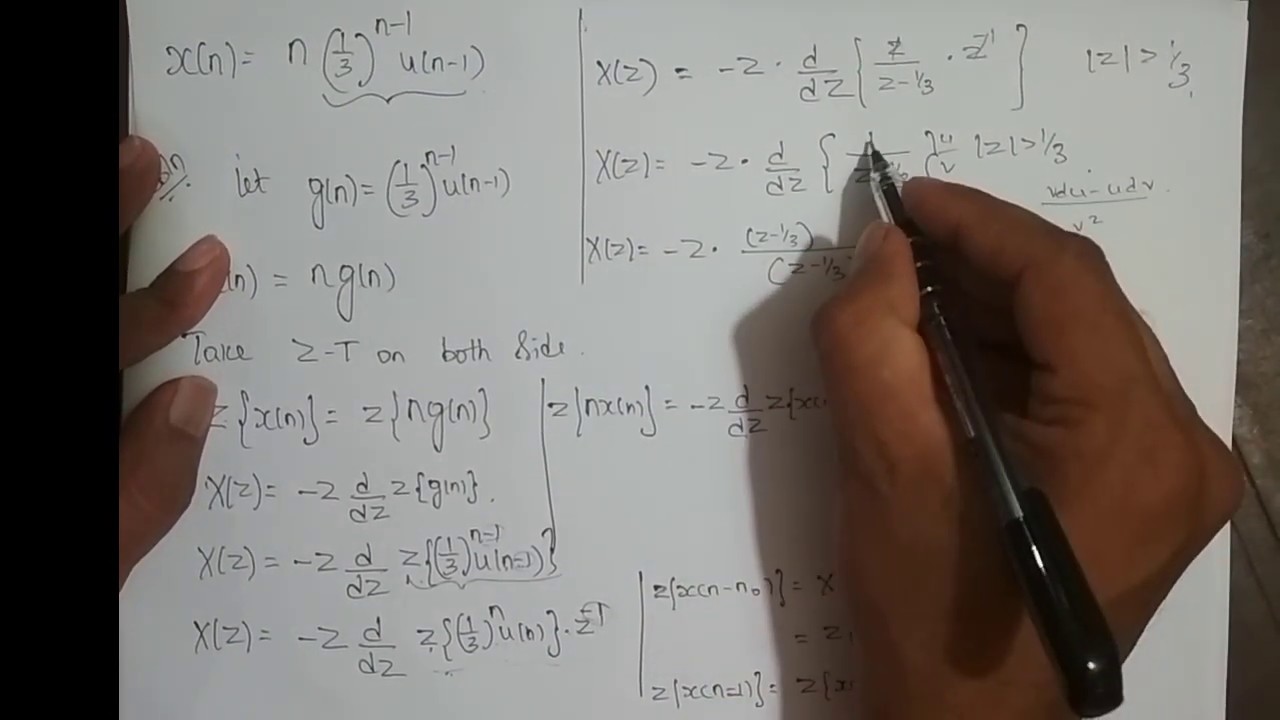 x(n) = n (1/3)^{n-1} u(n-1)
let g(n) = (1/3)^{n-1} u(n-1)
(n) = n g(n)
Take Z-T on both Side.
z{x(n)} = z{n g(n)}
X(z) = -z d/dz z{g(n)}.
X(z) = -z d/dz z{(1/3)^{n-1} u(n-1)}
X(z) = -z d/dz z{(1/3)^n u(n)} . z^{-1}
z{n x(n)} = -z d/dz z{x(
z{x(n-n₀)} = X
= z
z{x(n-1)} = z{x
X(z) = -z . d/dz { z/(z-1/3) . z^{-1} } |z| > 1/3
X(z) = -z . d/dz { } u/v |z| > 1/3
vdu - udv / v²
X(z) = -z . (z-1/3) / (z-1/3